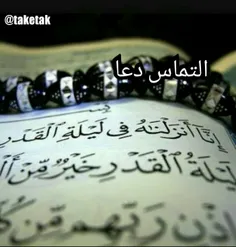 @taketak
التماس دعا
إِنَّا أَنزَلْنَاهُ فِي لَيْلَةِ الْقَدْرِ
لَيْلَةُ الْقَدْرِ خَيْرٌ مِّنْ
إِذْنِ رَبِّهِم مِّن كُ